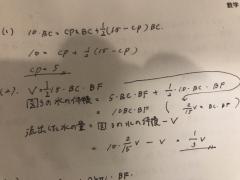 数学
(1) 10・BC = CP×BC + 1/2 (15 - CP) BC.
10 = CP + 1/2 (15 - CP)
CP = 5
(2). V = 1/2・15・BC・BF
図3の水の体積 = 5・BC・BF + 1/2・10・BC・BF
= 10BC・BF
(2/15 V = BC・BF)
流出した水の量 = 図3の水の体積 - V
= 10・2/15 V - V = 1/3 V